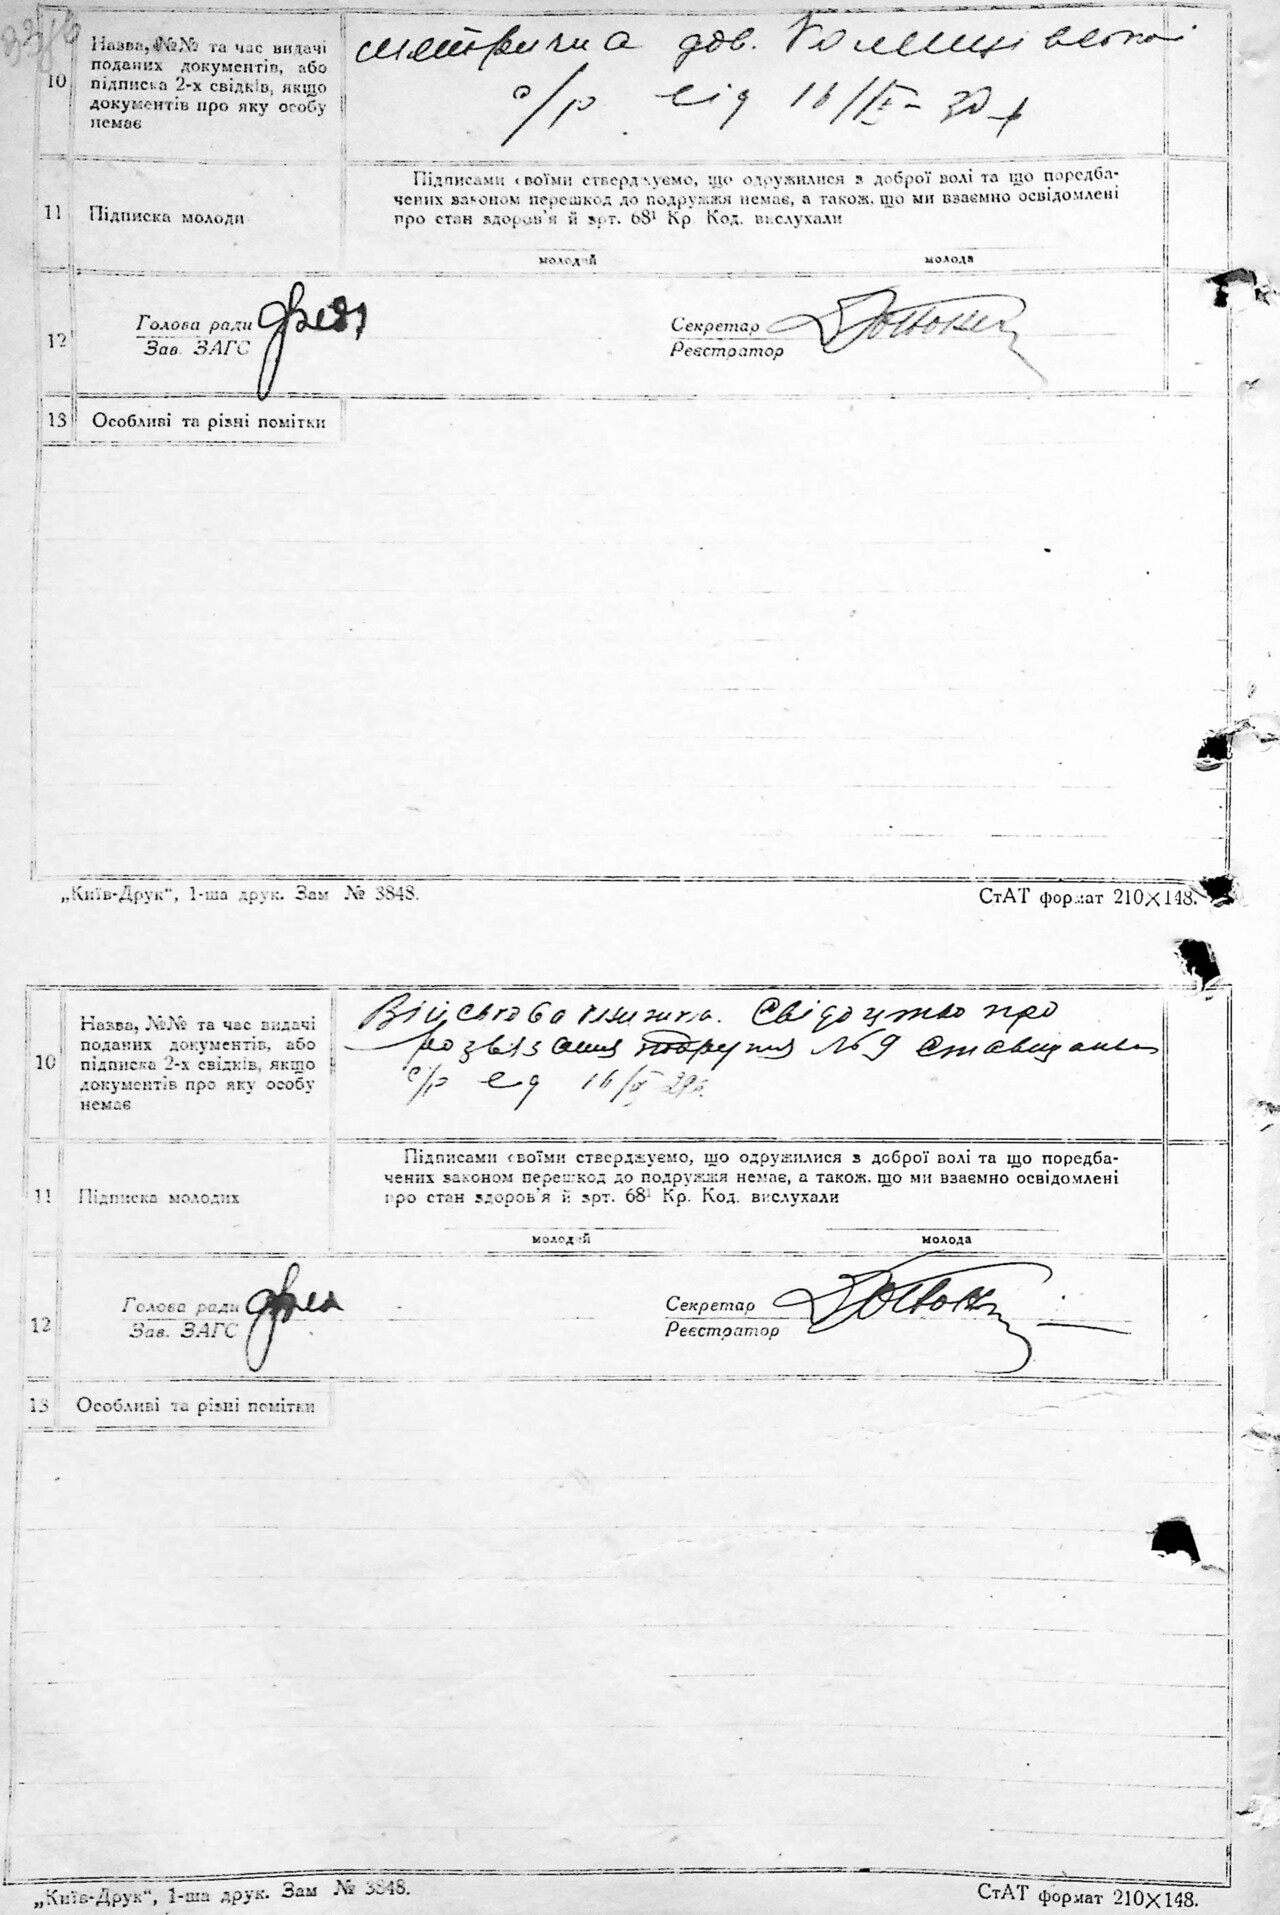 10
Назва, №№ та час видачі
поданих документів, або
підписка 2-х свідків, якщо
документів про яку особу
немає
метрична дов.
с/р від 16/IX-30 р
11
Підписка молоди
Підписами своїми стверджуємо, що одружилися з доброї волі та що поредба-
чених законом перешкод до подружжя немає, а також, що ми взаємно освідомлені
про стан здоров'я й арт. 68¹ Кр. Код. вислухали
молодий
молода
12
Голова ради
Зав. ЗАГС
Секретар
Реєстратор
13
Особливі та різні помітки
„Київ-Друк“, 1-ша друк. Зам № 3848.
СтАТ формат 210×148.
10
Назва, №№ та час видачі
поданих документів, або
підписка 2-х свідків, якщо
документів про яку особу
немає
Військова книжка. Свідоцтво про
розвязання №9
с/р від 16/
11
Підписка молодих
Підписами своїми стверджуємо, що одружилися з доброї волі та що поредба-
чених законом перешкод до подружжя немає, а також, що ми взаємно освідомлені
про стан здоров'я й арт. 68¹ Кр. Код. вислухали
молодий
молода
12
Голова ради
Зав. ЗАГС
Секретар
Реєстратор
13
Особливі та різні помітки
„Київ-Друк“, 1-ша друк. Зам № 3848.
СтАТ формат 210×148.